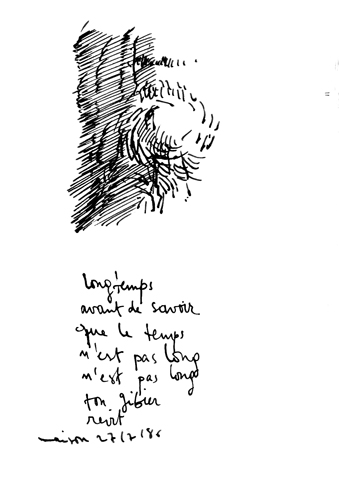 longtemps
avant de savoir
que le temps
n'est pas long
n'est pas long
ton gibier
revit
maison 27/7/86